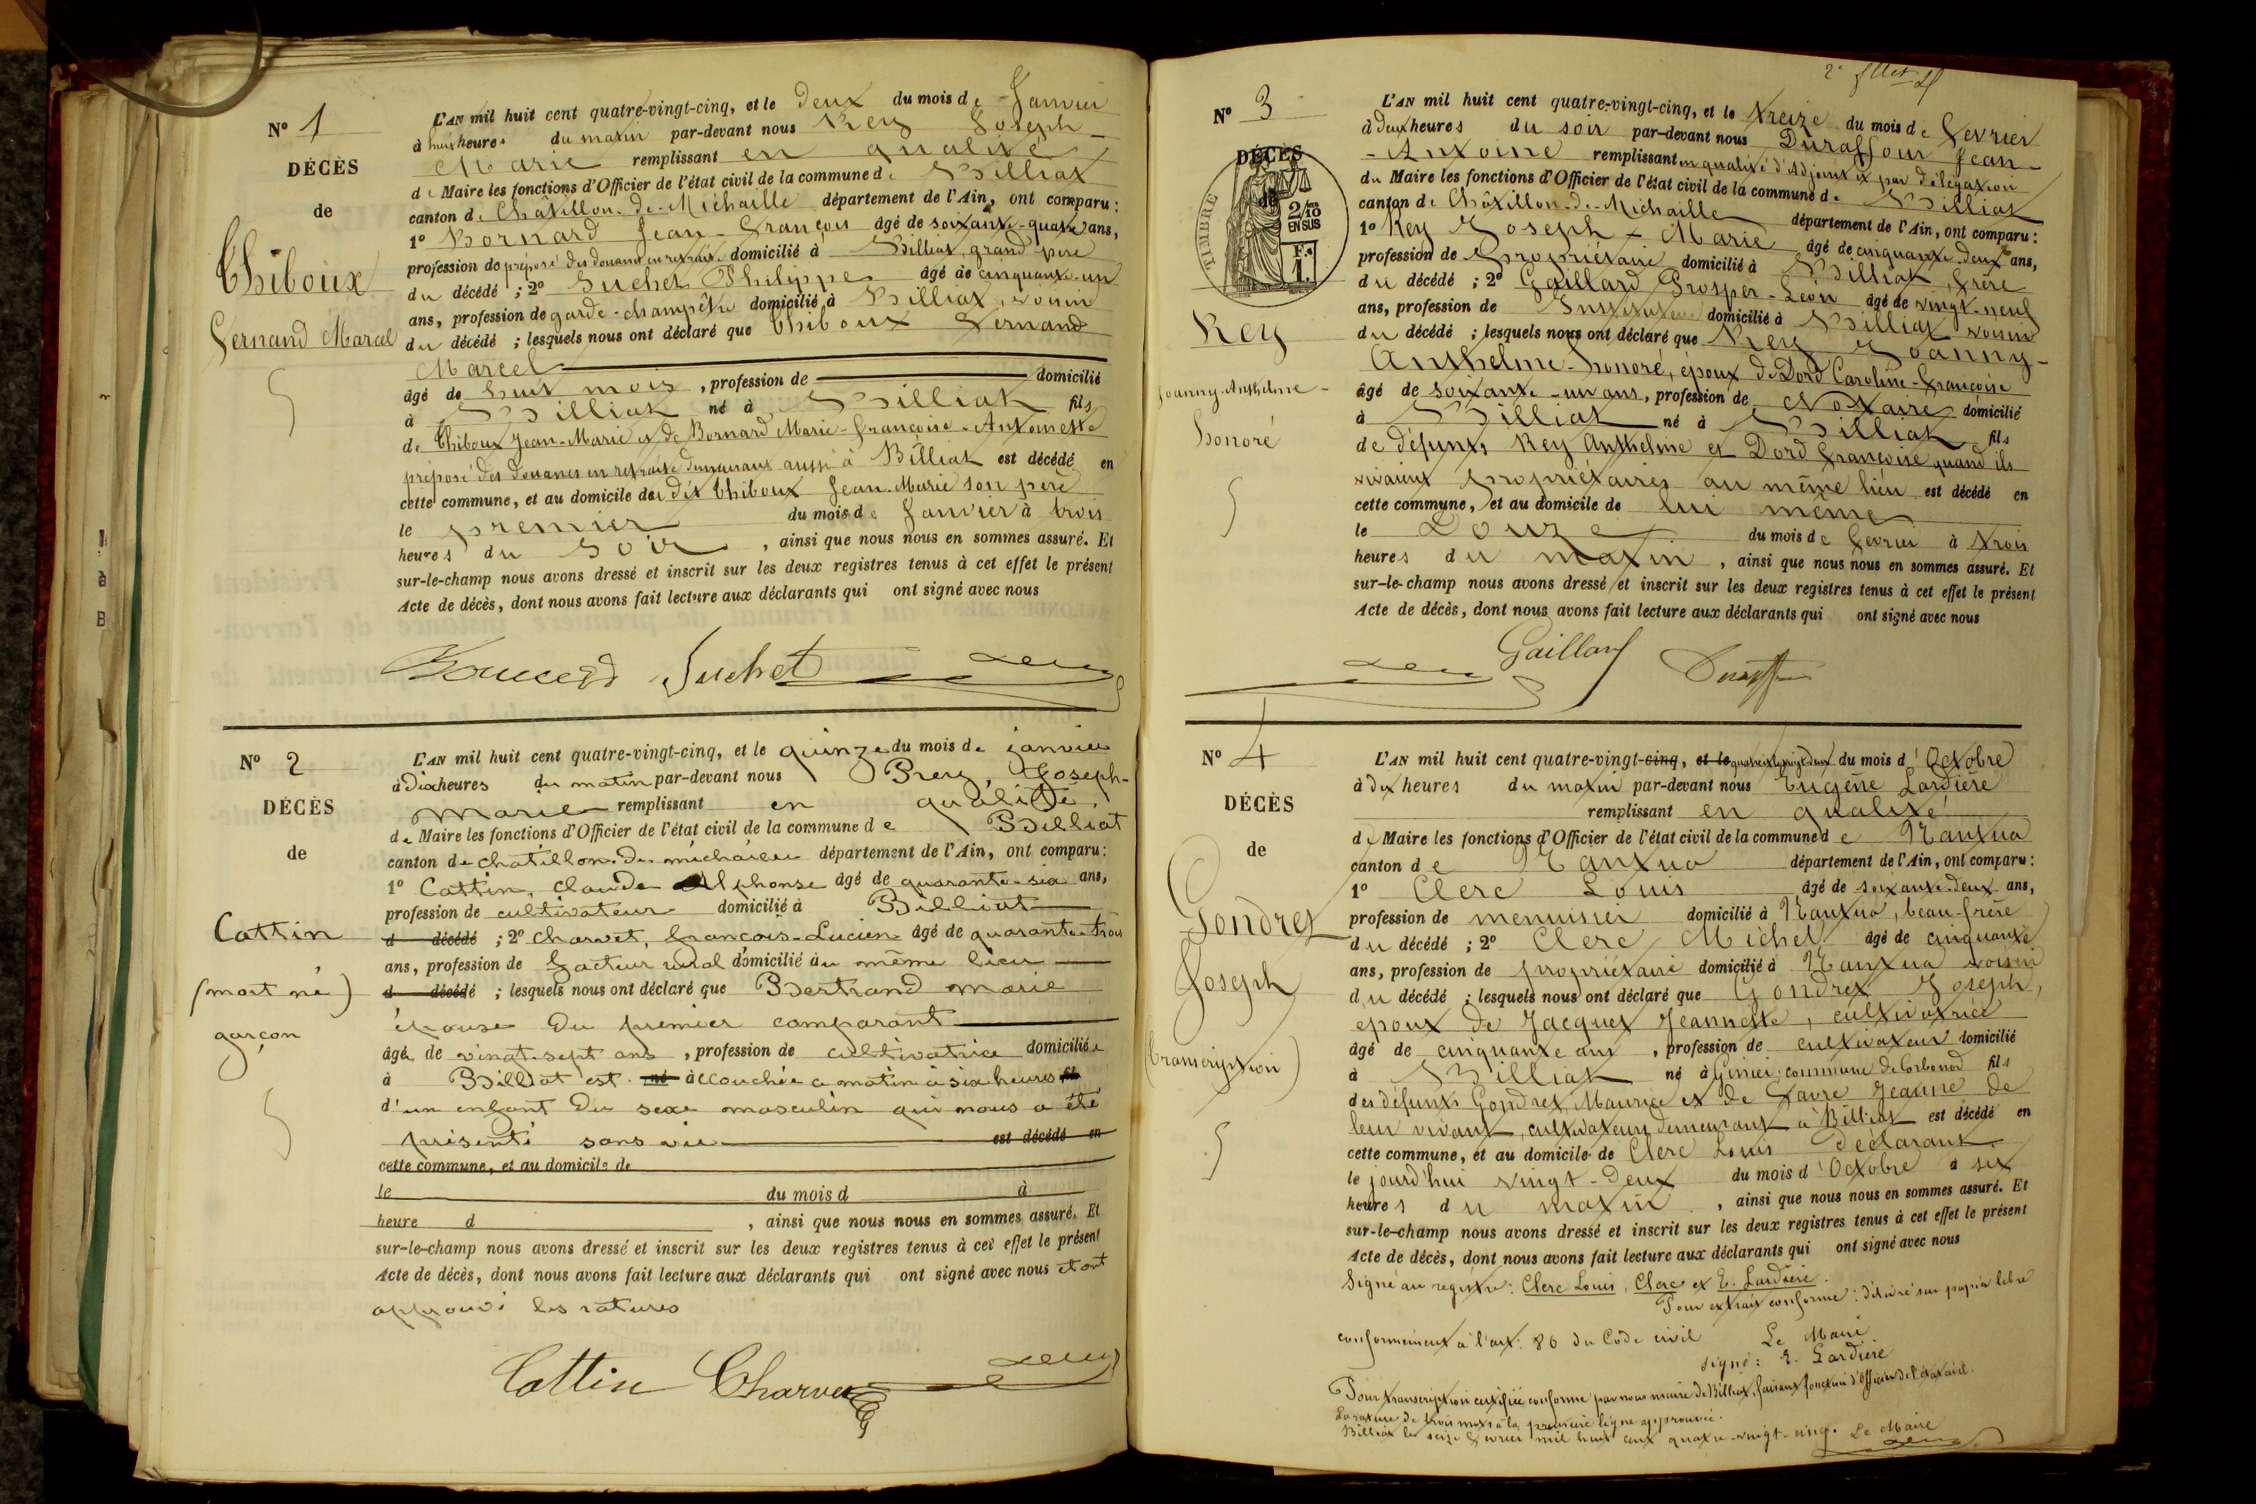 Nº 1
DÉCÈS
de
Thiboux
Fernand Marcel
L'AN mil huit cent quatre-vingt-cinq, et le deux du mois de Janvier
à huit heures du matin par-devant nous Rey Joseph-
Marie remplissant en qualité
de Maire les fonctions d'Officier de l'état civil de la commune de Billiat
canton de Châtillon-de-Michaille département de l'Ain, ont comparu:
1º Bornard Jean-François âgé de soixante-quatre ans,
profession de préposé des douanes en retraite domicilié à Billiat, grand père
du décédé ; 2º Suchet Philippe âgé de cinquante-un
ans, profession de garde-champêtre domicilié à Billiat, voisin
du décédé ; lesquels nous ont déclaré que Thiboux Fernand
Marcel
âgé de huit mois, profession de domicilié
à Billiat né à Billiat fils
de Thiboux Jean-Marie et de Bornard Marie-Françoise-Antoinette
préposé des douanes en retraite demeurant aussi à Billiat est décédé en
cette commune, et au domicile du dit Thiboux Jean-Marie son père
le premier du mois de Janvier à trois
heures du soir, ainsi que nous nous en sommes assuré. Et
sur-le-champ nous avons dressé et inscrit sur les deux registres tenus à cet effet le présent
Acte de décès, dont nous avons fait lecture aux déclarants qui ont signé avec nous
Bornard Suchet Rey
Nº 2
DÉCÈS
de
Cattin
(mort né)
garçon
L'AN mil huit cent quatre-vingt-cinq, et le quinze du mois de janvier
à dix heures du matin par-devant nous Rey, Joseph-
Marie remplissant en qualité
de Maire les fonctions d'Officier de l'état civil de la commune de Billiat
canton de chatillon-de-michaille département de l'Ain, ont comparu:
1º Cattin, Claude Alphonse âgé de quarante-six ans,
profession de cultivateur domicilié à Billiat
d décédé ; 2º Charvet, François-Lucien âgé de quarante-trois
ans, profession de facteur rural domicilié au même lieu
d décédé ; lesquels nous ont déclaré que Bertrand marie
épouse du premier comparant
âgée de vingt-sept ans, profession de cultivatrice domiciliée
à Billiat est né accouchée ce matin à six heures fils
d'un enfant du sexe masculin qui nous a été
présenté sans vie est décédé en
cette commune, et au domicile de
le du mois d à
heure d , ainsi que nous nous en sommes assuré. Et
sur-le-champ nous avons dressé et inscrit sur les deux registres tenus à cet effet le présent
Acte de décès, dont nous avons fait lecture aux déclarants qui ont signé avec nous et ont
approuvé les ratures
Cattin Charvet Rey
Nº 3
DÉCÈS
de
TIMBRE
2/10 EN SUS
Fc. 1.
Rey
Joanny-Anthelme-
Honoré
L'AN mil huit cent quatre-vingt-cinq, et le treize du mois de Février
à deux heures du soir par-devant nous Duraffour Jean-
-Antoine remplissant en qualité d'Adjoint et par délégation
du Maire les fonctions d'Officier de l'état civil de la commune de Billiat
canton de Châtillon-de-Michaille département de l'Ain, ont comparu:
1º Rey Joseph-Marie âgé de cinquante-deux ans,
profession de Propriétaire domicilié à Billiat, frère
du décédé ; 2º Gaillard Prosper-Léon âgé de vingt-neuf
ans, profession de Instituteur domicilié à Billiat voisin
du décédé ; lesquels nous ont déclaré que Rey Joanny-
Anthelme-Honoré, époux de Dord Caroline-Françoise
âgé de soixante-un ans, profession de Notaire domicilié
à Billiat né à Billiat fils
de défunts Rey Anthelme et Dord Françoise quand ils
vivaient propriétaires au même lieu est décédé en
cette commune, et au domicile de lui même
le Douze du mois de Février à trois
heures du matin, ainsi que nous nous en sommes assuré. Et
sur-le-champ nous avons dressé et inscrit sur les deux registres tenus à cet effet le présent
Acte de décès, dont nous avons fait lecture aux déclarants qui ont signé avec nous
Rey Gaillard Duraffour
Nº 4
DÉCÈS
de
Gondret
Joseph
(transcription)
L'AN mil huit cent quatre-vingt-cinq, et le quatre et le vingt deux du mois d'Octobre
à dix heures du matin par-devant nous Eugène Lardière
remplissant en qualité
de Maire les fonctions d'Officier de l'état civil de la commune de Nantua
canton de Nantua département de l'Ain, ont comparu:
1º Clerc Louis âgé de soixante-deux ans,
profession de menuisier domicilié à Nantua, beau-frère
du décédé ; 2º Clerc Michel âgé de cinquante
ans, profession de propriétaire domicilié à Nantua voisin
du décédé ; lesquels nous ont déclaré que Gondret Joseph,
époux de Jacquet Jeannette, cultivatrice
âgé de cinquante ans, profession de cultivateur domicilié
à Billiat né à Gignez, commune de Corbonod fils
des défunts Gondret Maurice et de Favre Jeanne de
leur vivant, cultivateurs demeurant à Billiat est décédé en
cette commune, et au domicile de Clerc Louis déclarant
le jourd'hui vingt-deux du mois d'Octobre à six
heures du matin, ainsi que nous nous en sommes assuré. Et
sur-le-champ nous avons dressé et inscrit sur les deux registres tenus à cet effet le présent
Acte de décès, dont nous avons fait lecture aux déclarants qui ont signé avec nous
Signé au registre: Clerc Louis, Clerc et E. Lardière.
Pour extrait conforme: délivré sur papier libre
conformément à l'art. 80 du Code civil
Le Maire
signé: E. Lardière
Pour transcription certifiée conforme par nous maire de Billiat, faisant fonction d'Officier de l'état civil.
La rature de trois mots à la première ligne approuvée.
Billiat le seize Février mil huit cent quatre-vingt-cinq. Le Maire
Rey